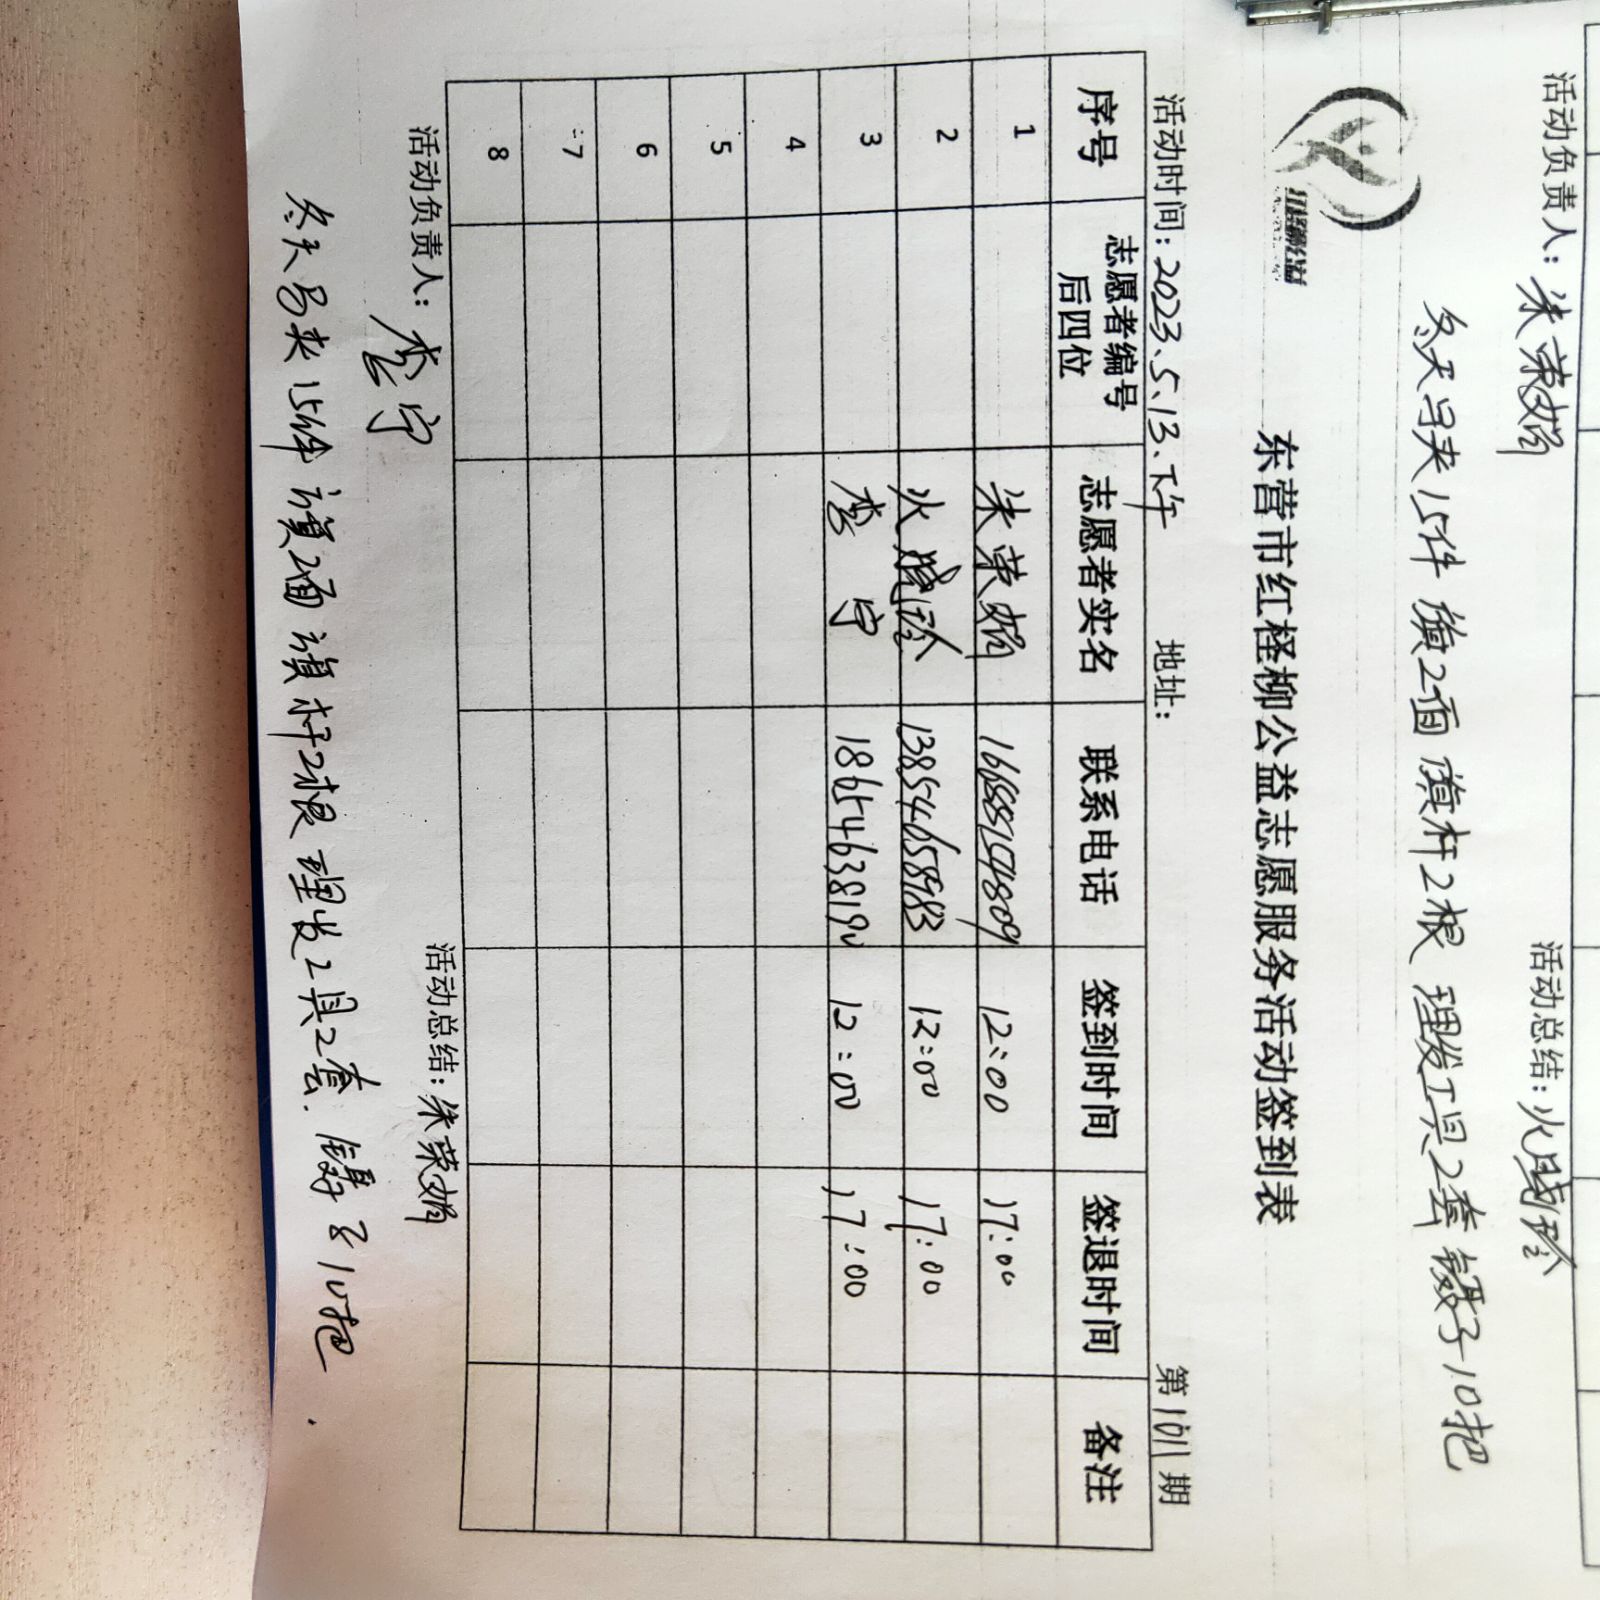 活动负责人：朱荣娟 活动总结：火晓玲
冬天马夹15件 旗2面 旗杆2根 理发工具2套 镊子10把
东营市红柽柳公益志愿服务活动签到表
活动时间：2023.5.13.下午 地址： 第1011期
序号 志愿者编号后四位 志愿者实名 联系电话 签到时间 签退时间 备注
1 朱荣娟 12:00 17:00
2 火晓玲 13854658983 12:00 17:00
3 李宁 18654638190 12:00 17:00
4
5
6
7
8
活动负责人：李宁 活动总结：朱荣娟
冬天马夹15件 旗2面 旗杆2根 理发工具2套. 镊子10把.